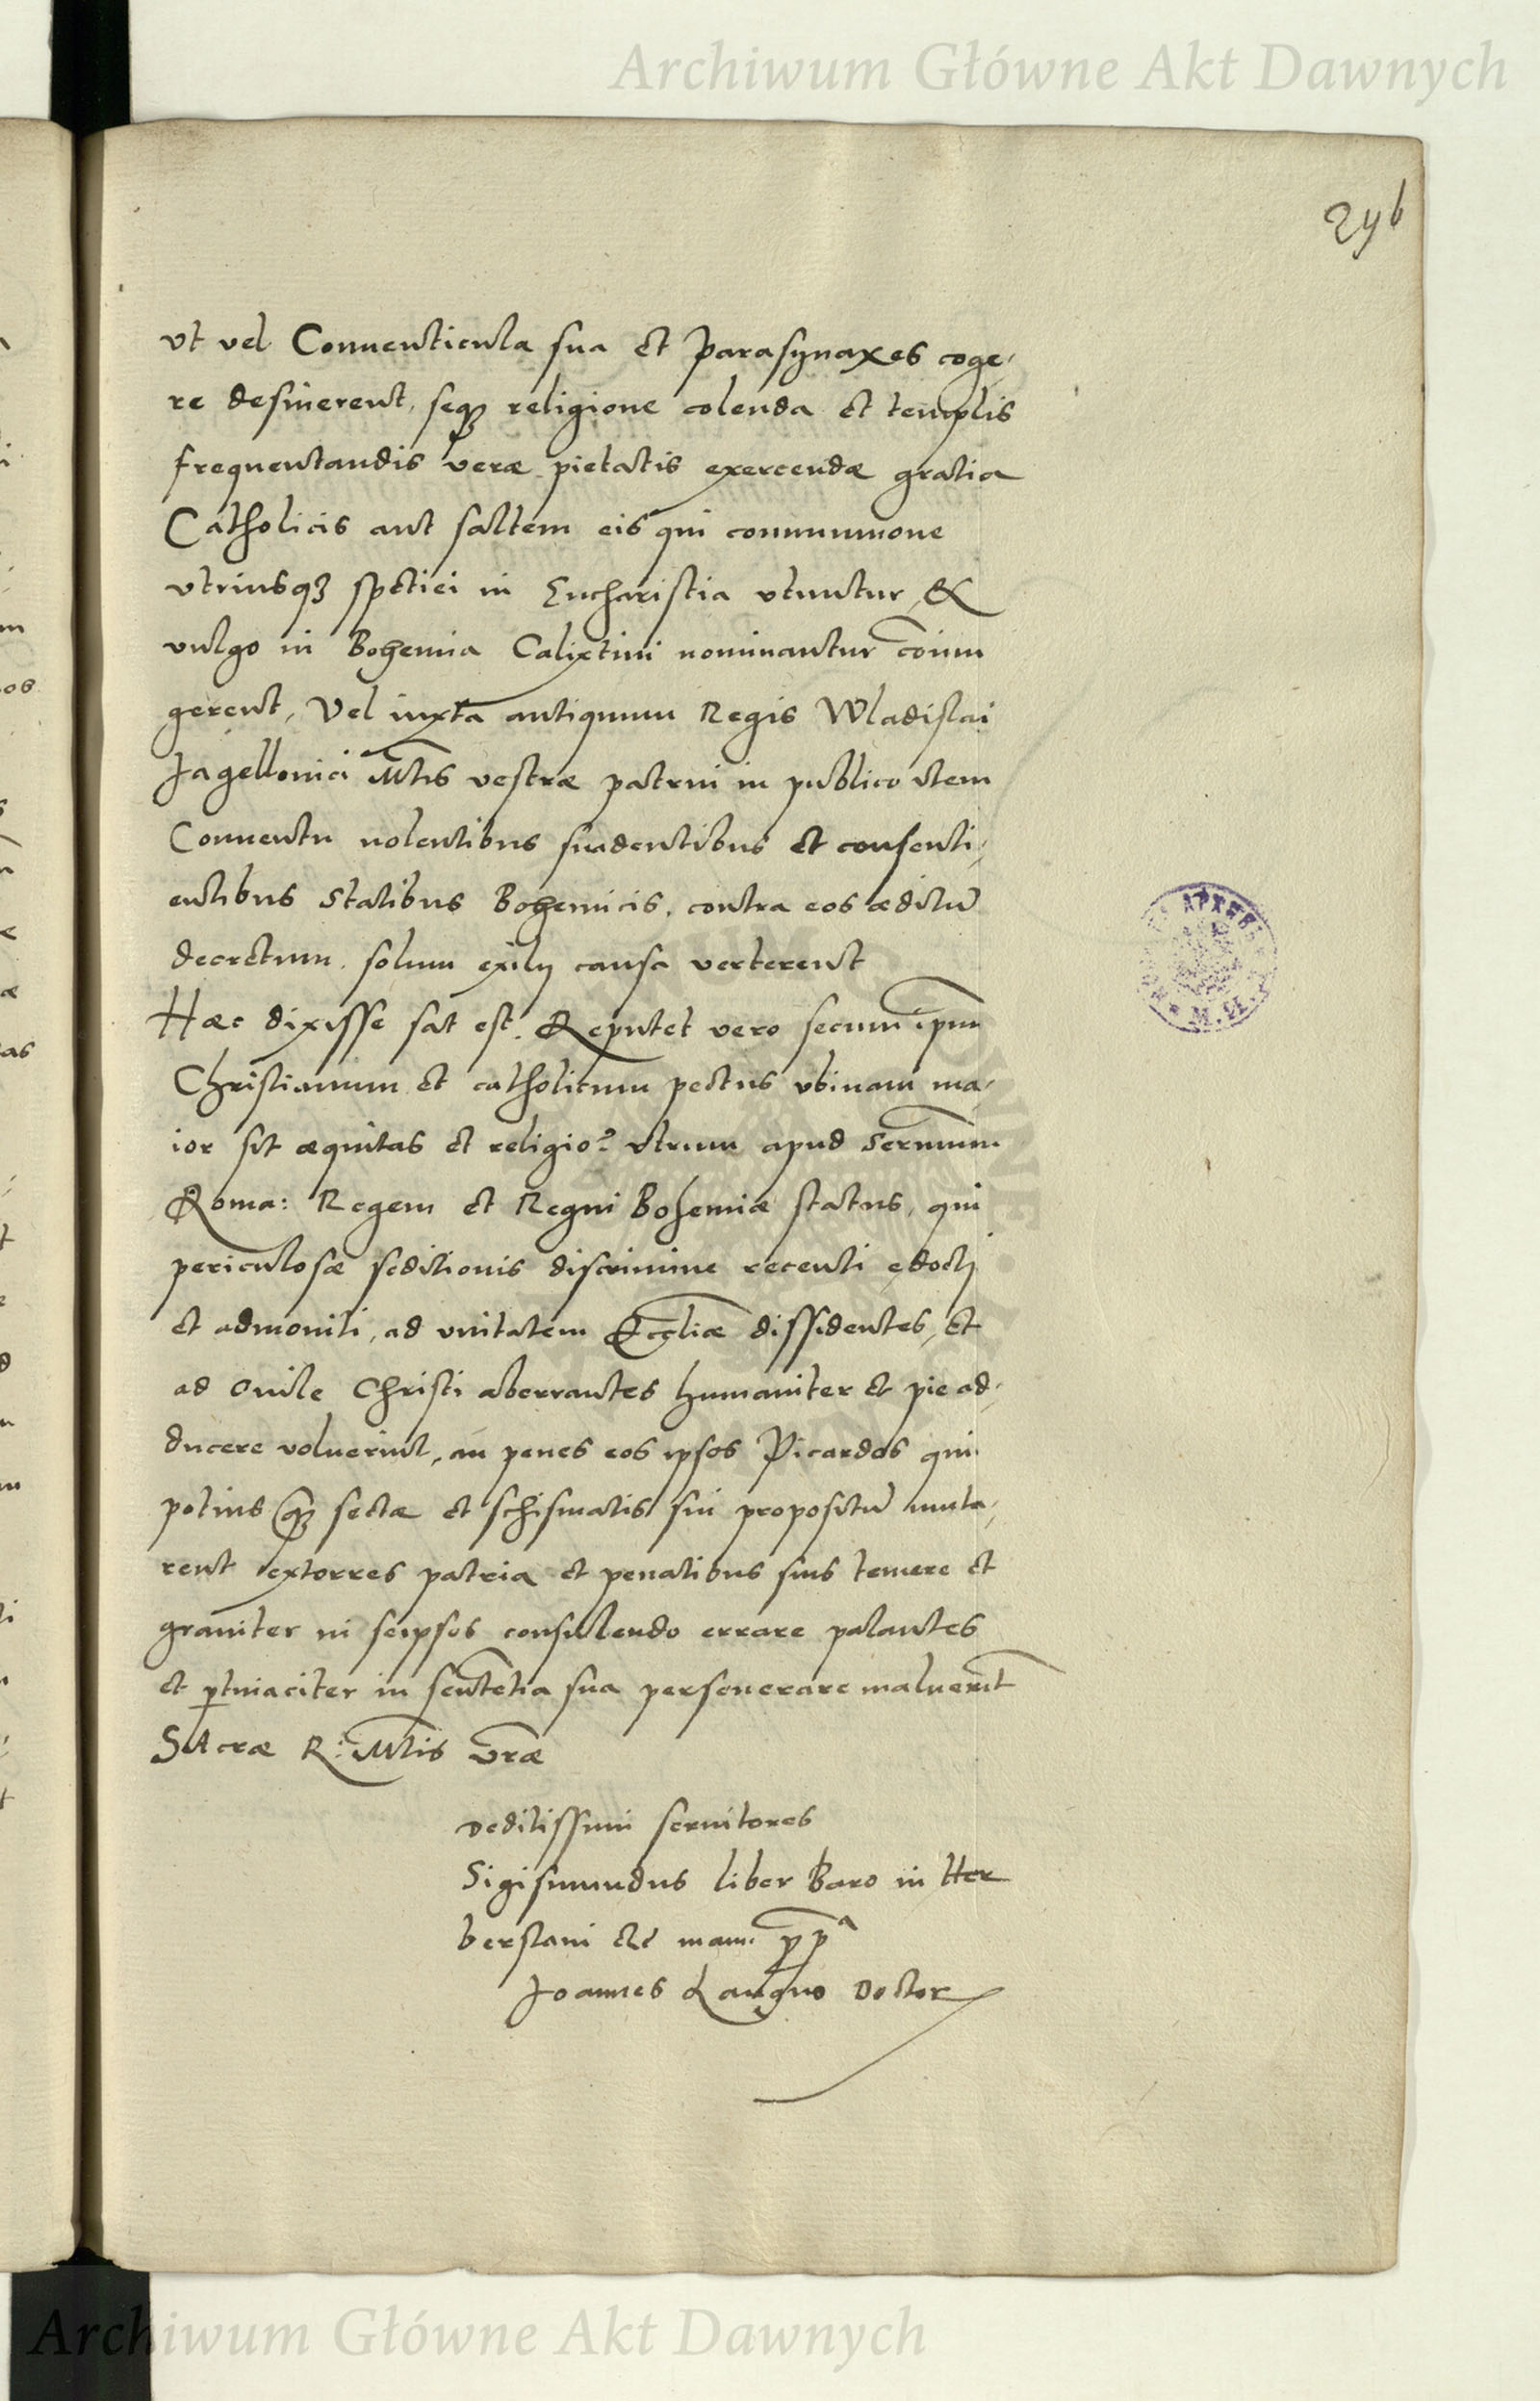 Archiwum Główne Akt Dawnych
296
vt vel Conuenticula sua et Parasynaxes coge,
re desinerent, seqꝫ religione colenda et templis
frequentandis veræ pietatis exercendæ gratia
Catholicis aut saltem eis qui communione
vtriusqꝫ spetiei in Eucharistia vtuntur &
vulgo in Bohemia Calixtini nominantur coniun
gerent, Vel iuxta antiquum Regis Wladislai
Jagellonici Mtis vestræ patrui in publico item
Conuentu volentibus suadentibus et consenti,
entibus statibus Bohemicis, contra eos æditū
decretum, solum exilij causa verterent
Hæc dixisse sat est. Reputet vero secum ipm̄
Christianum et catholicum pectus vbinam ma,
ior sit æquitas et religio? vtrum apud Sermum
Roma: Regem et Regni Bohemiæ status, qui
periculosæ seditionis discrimine recenti edocti
et admoniti, ad vnitatem Eccliæ dissidentes, et
ad Ouile Christi aberrantes humaniter et pie ad,
ducere voluerint, an penes eos ipsos Picardos qui
potius qꝫ sectæ et schismatis sui propositū muta,
rent extorres patria et penatibus suis temere et
grauiter in seipsos consulendo errare palantes
et ptinaciter in sententia sua perseuerare maluerint
SAcræ R: Mtis vræ
Deditissimi seruitores
Sigismundus liber Baro in Her
berstain etc manu ppa
Joannes Langus Doctor
Archiwum Główne Akt Dawnych